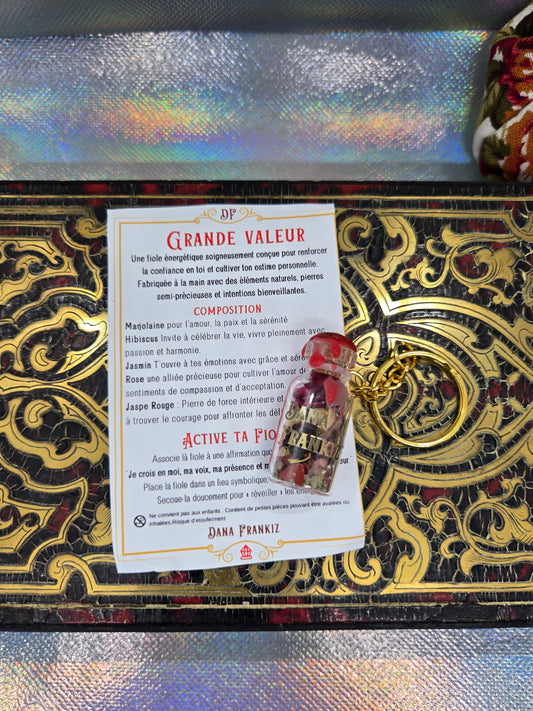 DF
GRANDE VALEUR
Une fiole énergétique soigneusement conçue pour renforcer
la confiance en toi et cultiver ton estime personnelle.
Fabriquée à la main avec des éléments naturels, pierres
semi-précieuses et intentions bienveillantes.
COMPOSITION
Marjolaine pour l'amour, la paix et la sérénité
Hibiscus Invite à célébrer la vie, vivre pleinement avec
passion et harmonie.
Jasmin T'ouvre à tes émotions avec grâce et
Rose une alliée précieuse pour cultiver l'amour de
sentiments de compassion et d'acceptation.
Jaspe Rouge : Pierre de force intérieure et
à trouver le courage pour affronter les
ACTIVE TA
Associe la fiole à une affirmation
"Je crois en moi, ma voix, ma présence et
Place la fiole dans un lieu symbolique,
Secoue-la doucement pour « réveiller » les
Ne convient pas aux enfants . Contient de petites pièces pouvant être avalées ou
inhalées.Risque d'étouffement
DANA FRANKIZ
DANA
FRANKIZ